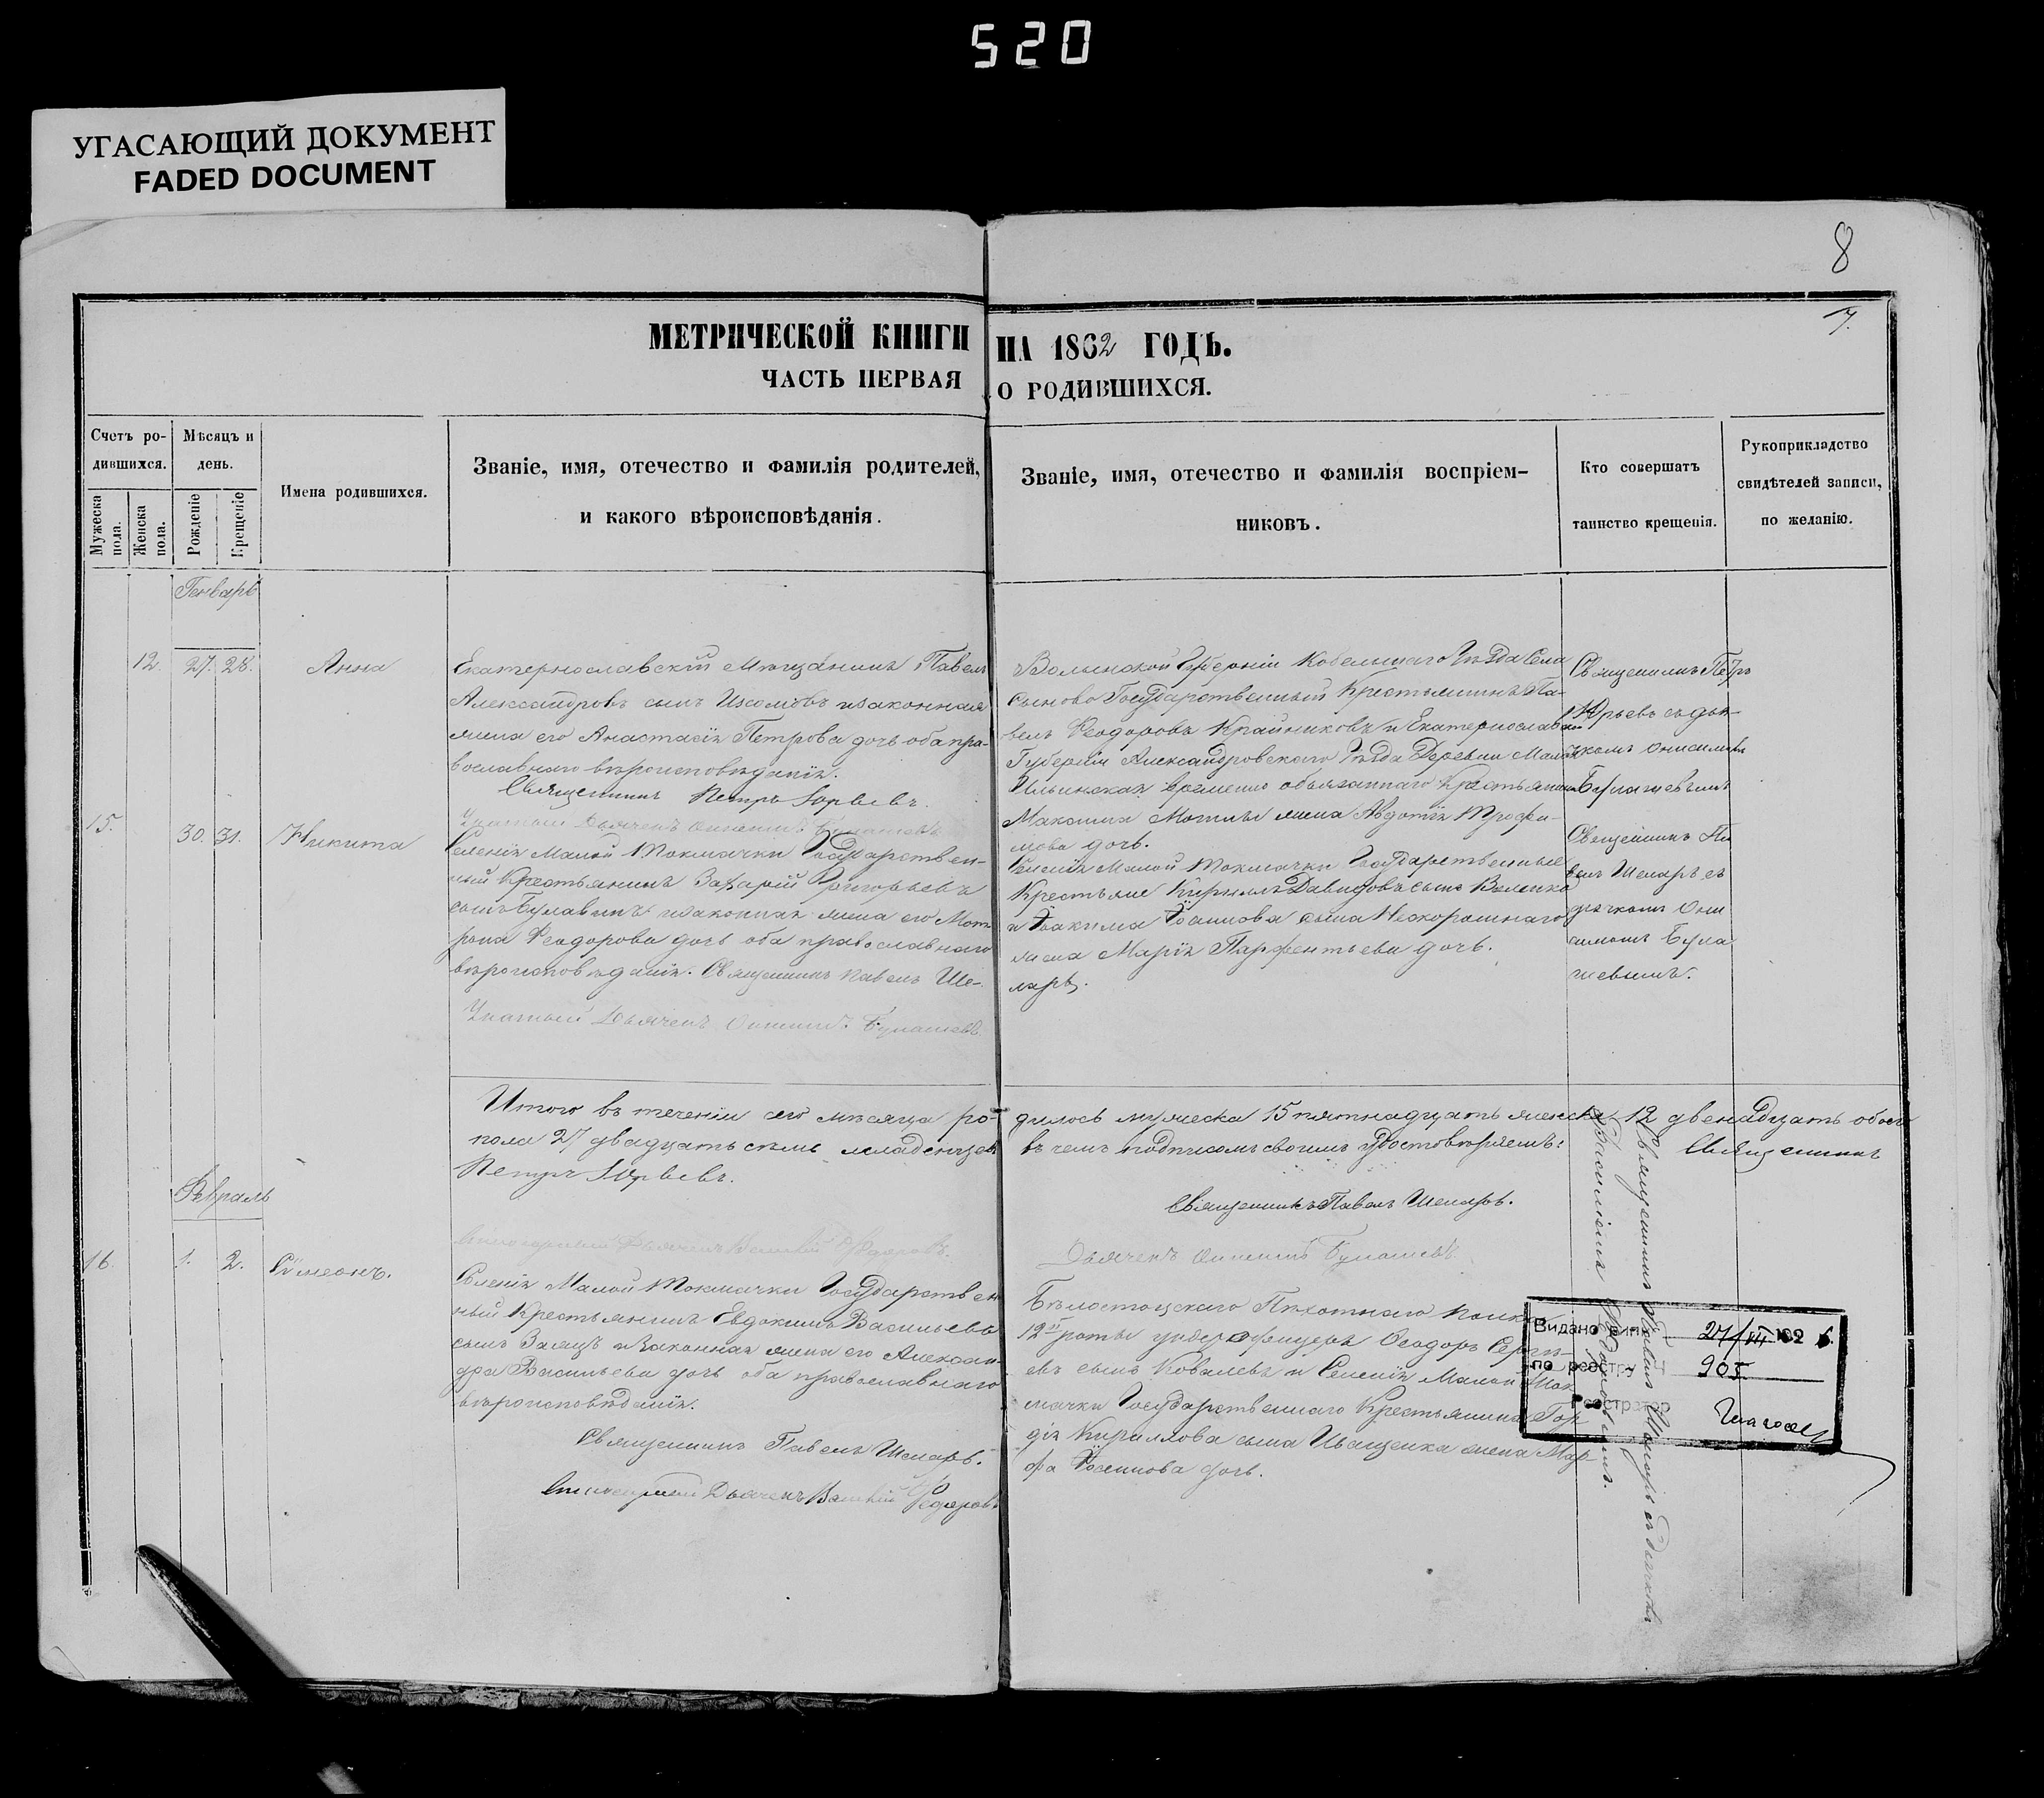 520
УГАСАЮЩИЙ ДОКУМЕНТ
FADED DOCUMENT
8
7.
МЕТРИЧЕСКОЙ КНИГИ НА 1862 ГОДЪ.
ЧАСТЬ ПЕРВАЯ О РОДИВШИХСЯ.
Счетъ ро-
дившихся.
Мужеска
пола.
Женска
пола.
Мѣсяцъ и
день.
Рожденіе
Крещеніе
Имена родившихся.
Званіе, имя, отечество и фамилія родителей,
и какого вѣроисповѣданія.
Званіе, имя, отечество и фамилія воспріем-
никовъ.
Кто совершатъ
таинство крещенія.
Рукоприкладство
свидѣтелей записи,
по желанію.
Генварь
12. 27. 28. Анна
Екатеринославскій Мѣщанинъ Павелъ
Александровъ сынъ и законная
жена его Анастасія Петрова дочь оба пра-
вославнаго вѣроисповѣданія.
Священникъ Петръ Юрьевъ.
Волынской Губерніи Уѣзда Села
Государственный Крестьянинъ Па-
велъ Ѳеодоровъ Крайниковъ и Екатеринослав
Губерніи Александровскаго Уѣзда Деревни
временно обязаннаго Крестьянина
Максима жена Авдотія Трофи-
мова дочь.
Священникъ Петръ
Юрьевъ съ дья-
комъ Онисимомъ
15. 30. 31. Никита
Селенія Малой Токмачки Государствен-
ный Крестьянинъ Захарій Григорьевъ
сынъ Булавинъ и законная жена его Мот-
рона Ѳеодорова дочь оба православнаго
вѣроисповѣданія. Священникъ Павелъ Ше-
маръ.
Дьячекъ
Селенія Малой Токмачки Государственные
Крестьяне Кириллъ Давидовъ сынъ
и Іоакима сына
жена Марія Парфентьева дочь.
Священникъ Па
велъ Шемаръ съ
дьячкомъ Они
симомъ Була
шевымъ.
Итого въ теченіи сего мѣсяца ро- дилось мужеска 15 пятнадцать женска 12 двенадцать обоего
пола 27 двадцать семь младенцевъ въ чемъ подписомъ своимъ удостовѣряемъ: Священникъ
Петръ Юрьевъ.
Священникъ Павелъ Шемаръ.
Дьячекъ Онисимъ Булашевъ
Февраль
16. 1. 2. Сімеонъ.
Селенія Малой Токмачки Государствен
ный Крестьянинъ Евдокимъ Васильевъ
сынъ Заяцъ и Законная жена его Алексан-
дра Васильева дочь оба православнаго
вѣроисповѣданія.
Священникъ Павелъ Шемаръ.
Дьячекъ Василій Федоровъ
Бѣлостоцскаго Пѣхотнаго полка
12й роты ундерофицеръ Ѳеодоръ Сергѣ-
евъ сынъ Ковалевъ и Селенія Малой Ток
мачки Государственнаго Крестьянина Гор
дія Кириллова сына Иващенка жена Мар-
фа дочь.
Священникъ Павелъ Шемаръ съ дьячкомъ
Василіемъ Федоровымъ.
Видано випис 27/VII 192
по реєстру № 905
Реєстратор